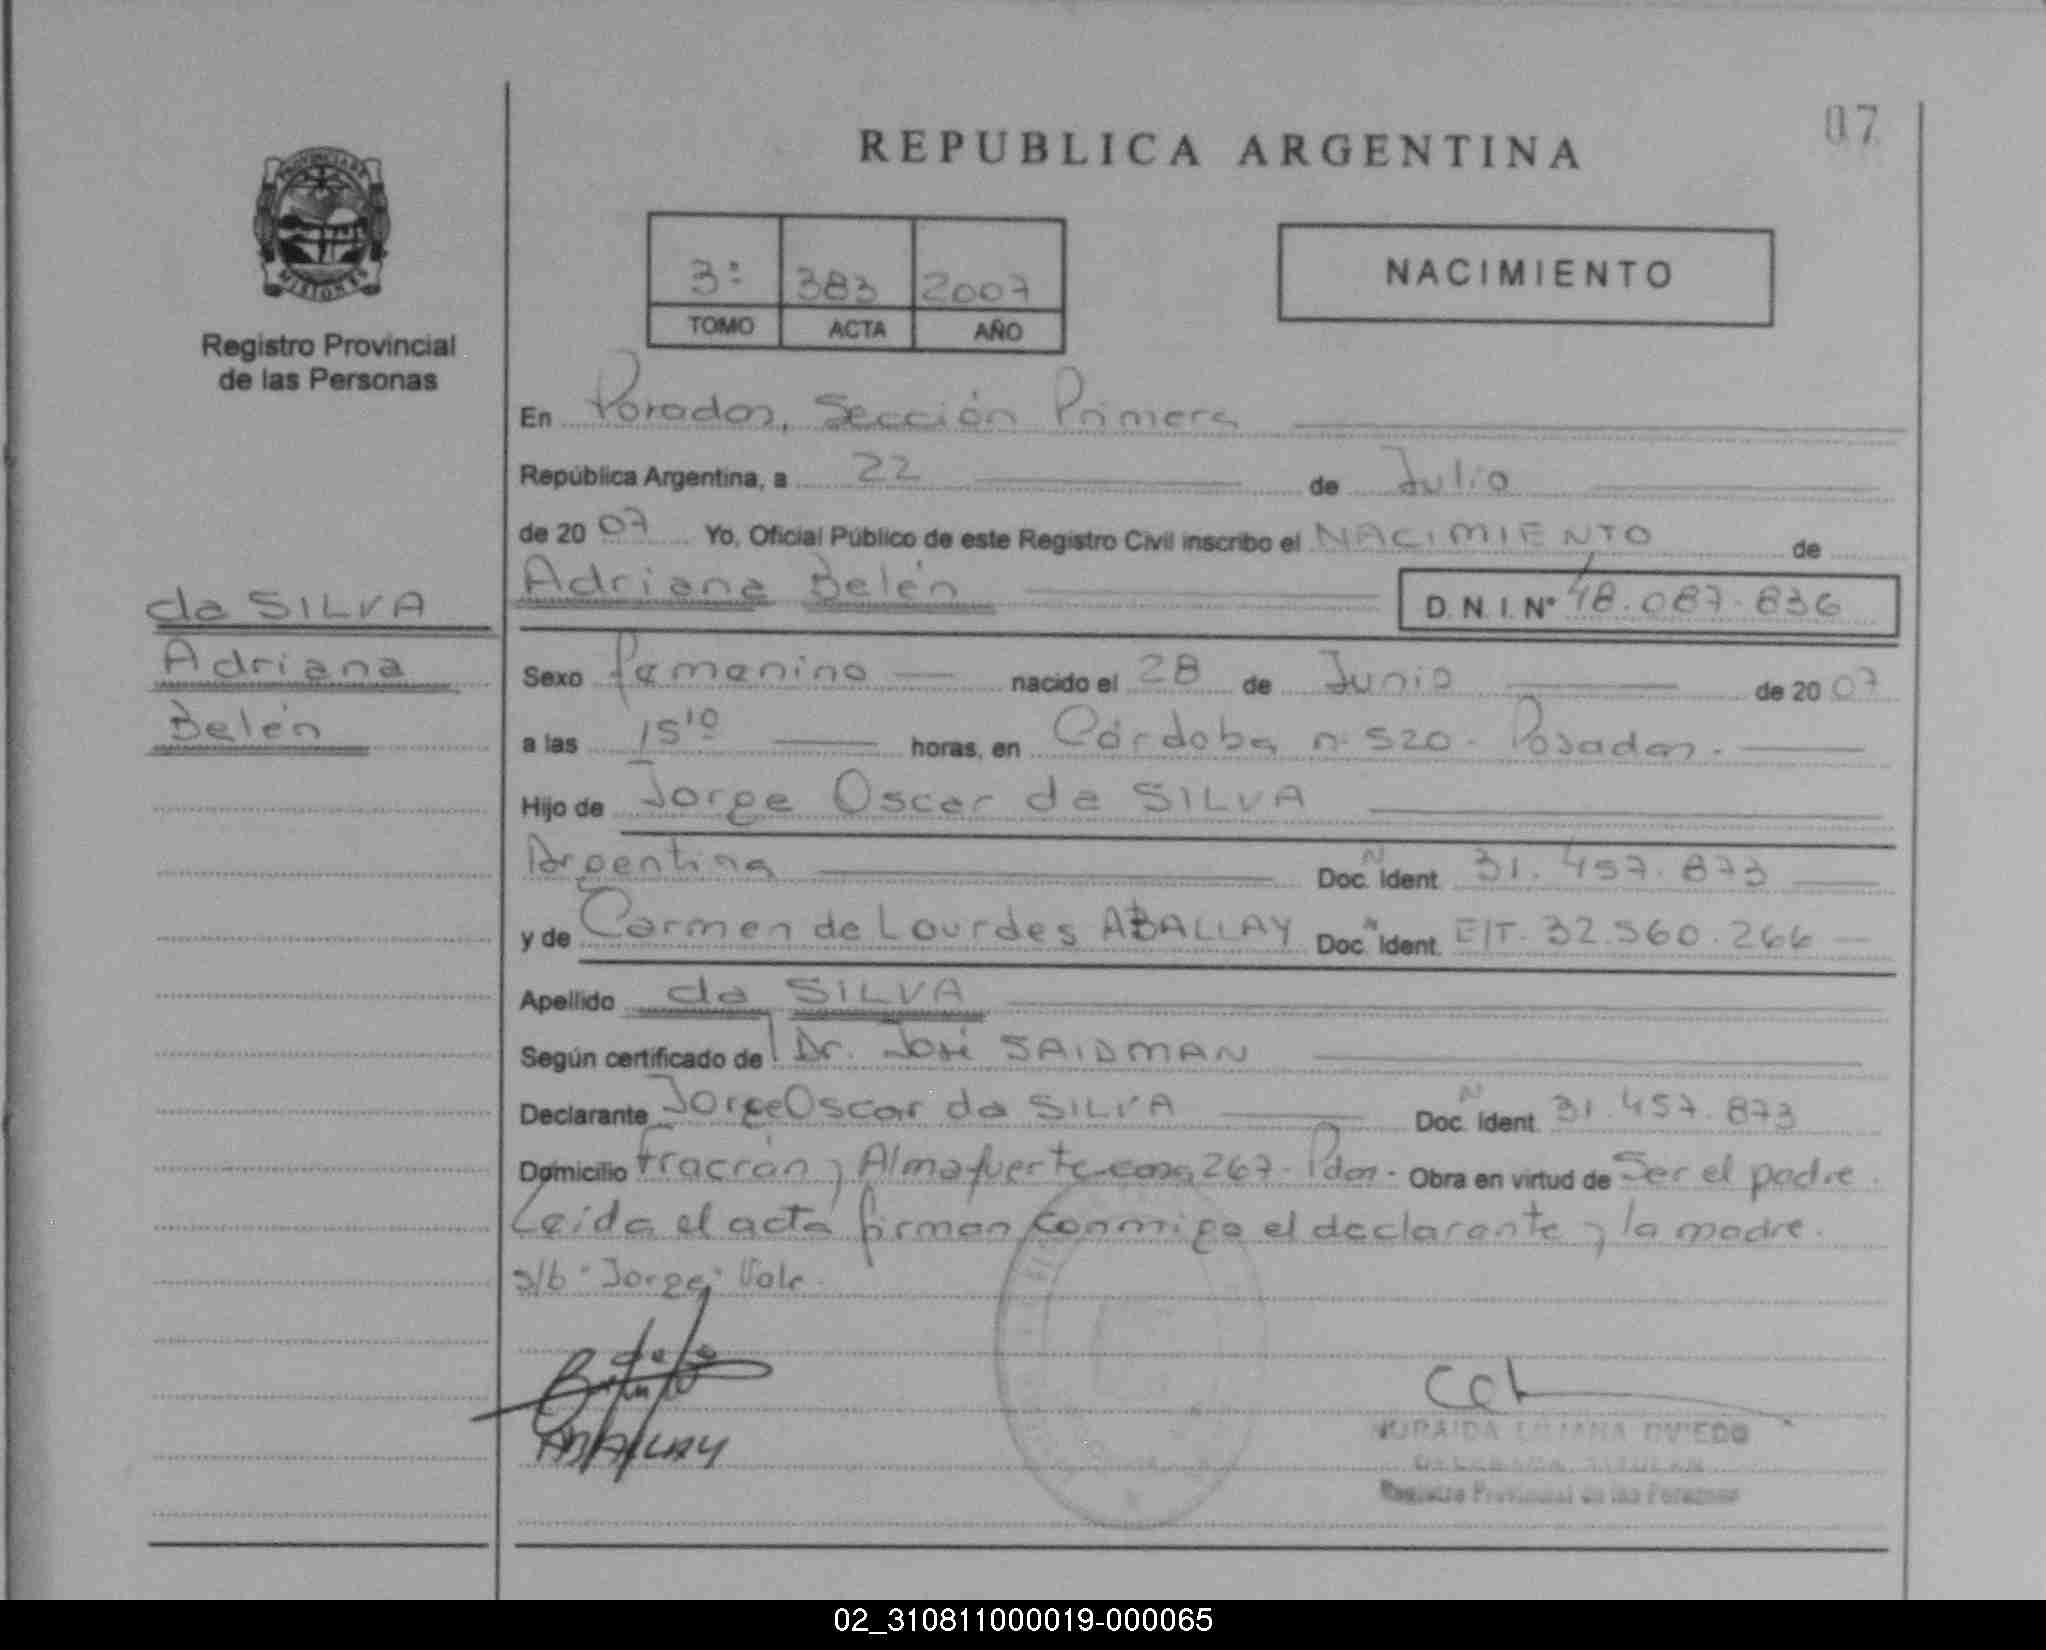 07
REPUBLICA ARGENTINA
PROVINCIA DE
MISIONES
Registro Provincial
de las Personas
3º 383 2007
TOMO ACTA AÑO
NACIMIENTO
En Posadas, Sección Primera
República Argentina, a 22 de Julio
de 2007 Yo, Oficial Público de este Registro Civil inscribo el NACIMIENTO de
Adriana Belén D.N.I. Nº 48.087.836
da SILVA
Adriana
Belén
Sexo femenino nacido el 28 de Junio de 2007
a las 15 10 horas, en Córdoba nº 520 - Posadas.
Hijo de Jorge Oscar da SILVA
Argentina Doc. N Ident. 31.457.873
y de Carmen de Lourdes ABALLAY Doc. N Ident. E/T. 32.560.266
Apellido da SILVA
Según certificado de Dr. José SAIDMAN
Declarante Jorge Oscar da SILVA Doc. N Ident. 31.457.873
Domicilio Fracrán y Almafuerte casa 267 - Pdas - Obra en virtud de Ser el padre.
Leída el acta firman conmigo el declarante y la madre.
s/b "Jorge" Vale.
ABALLAY
LILIANA OVIEDO
Registro Provincial de las Personas
02_310811000019-000065